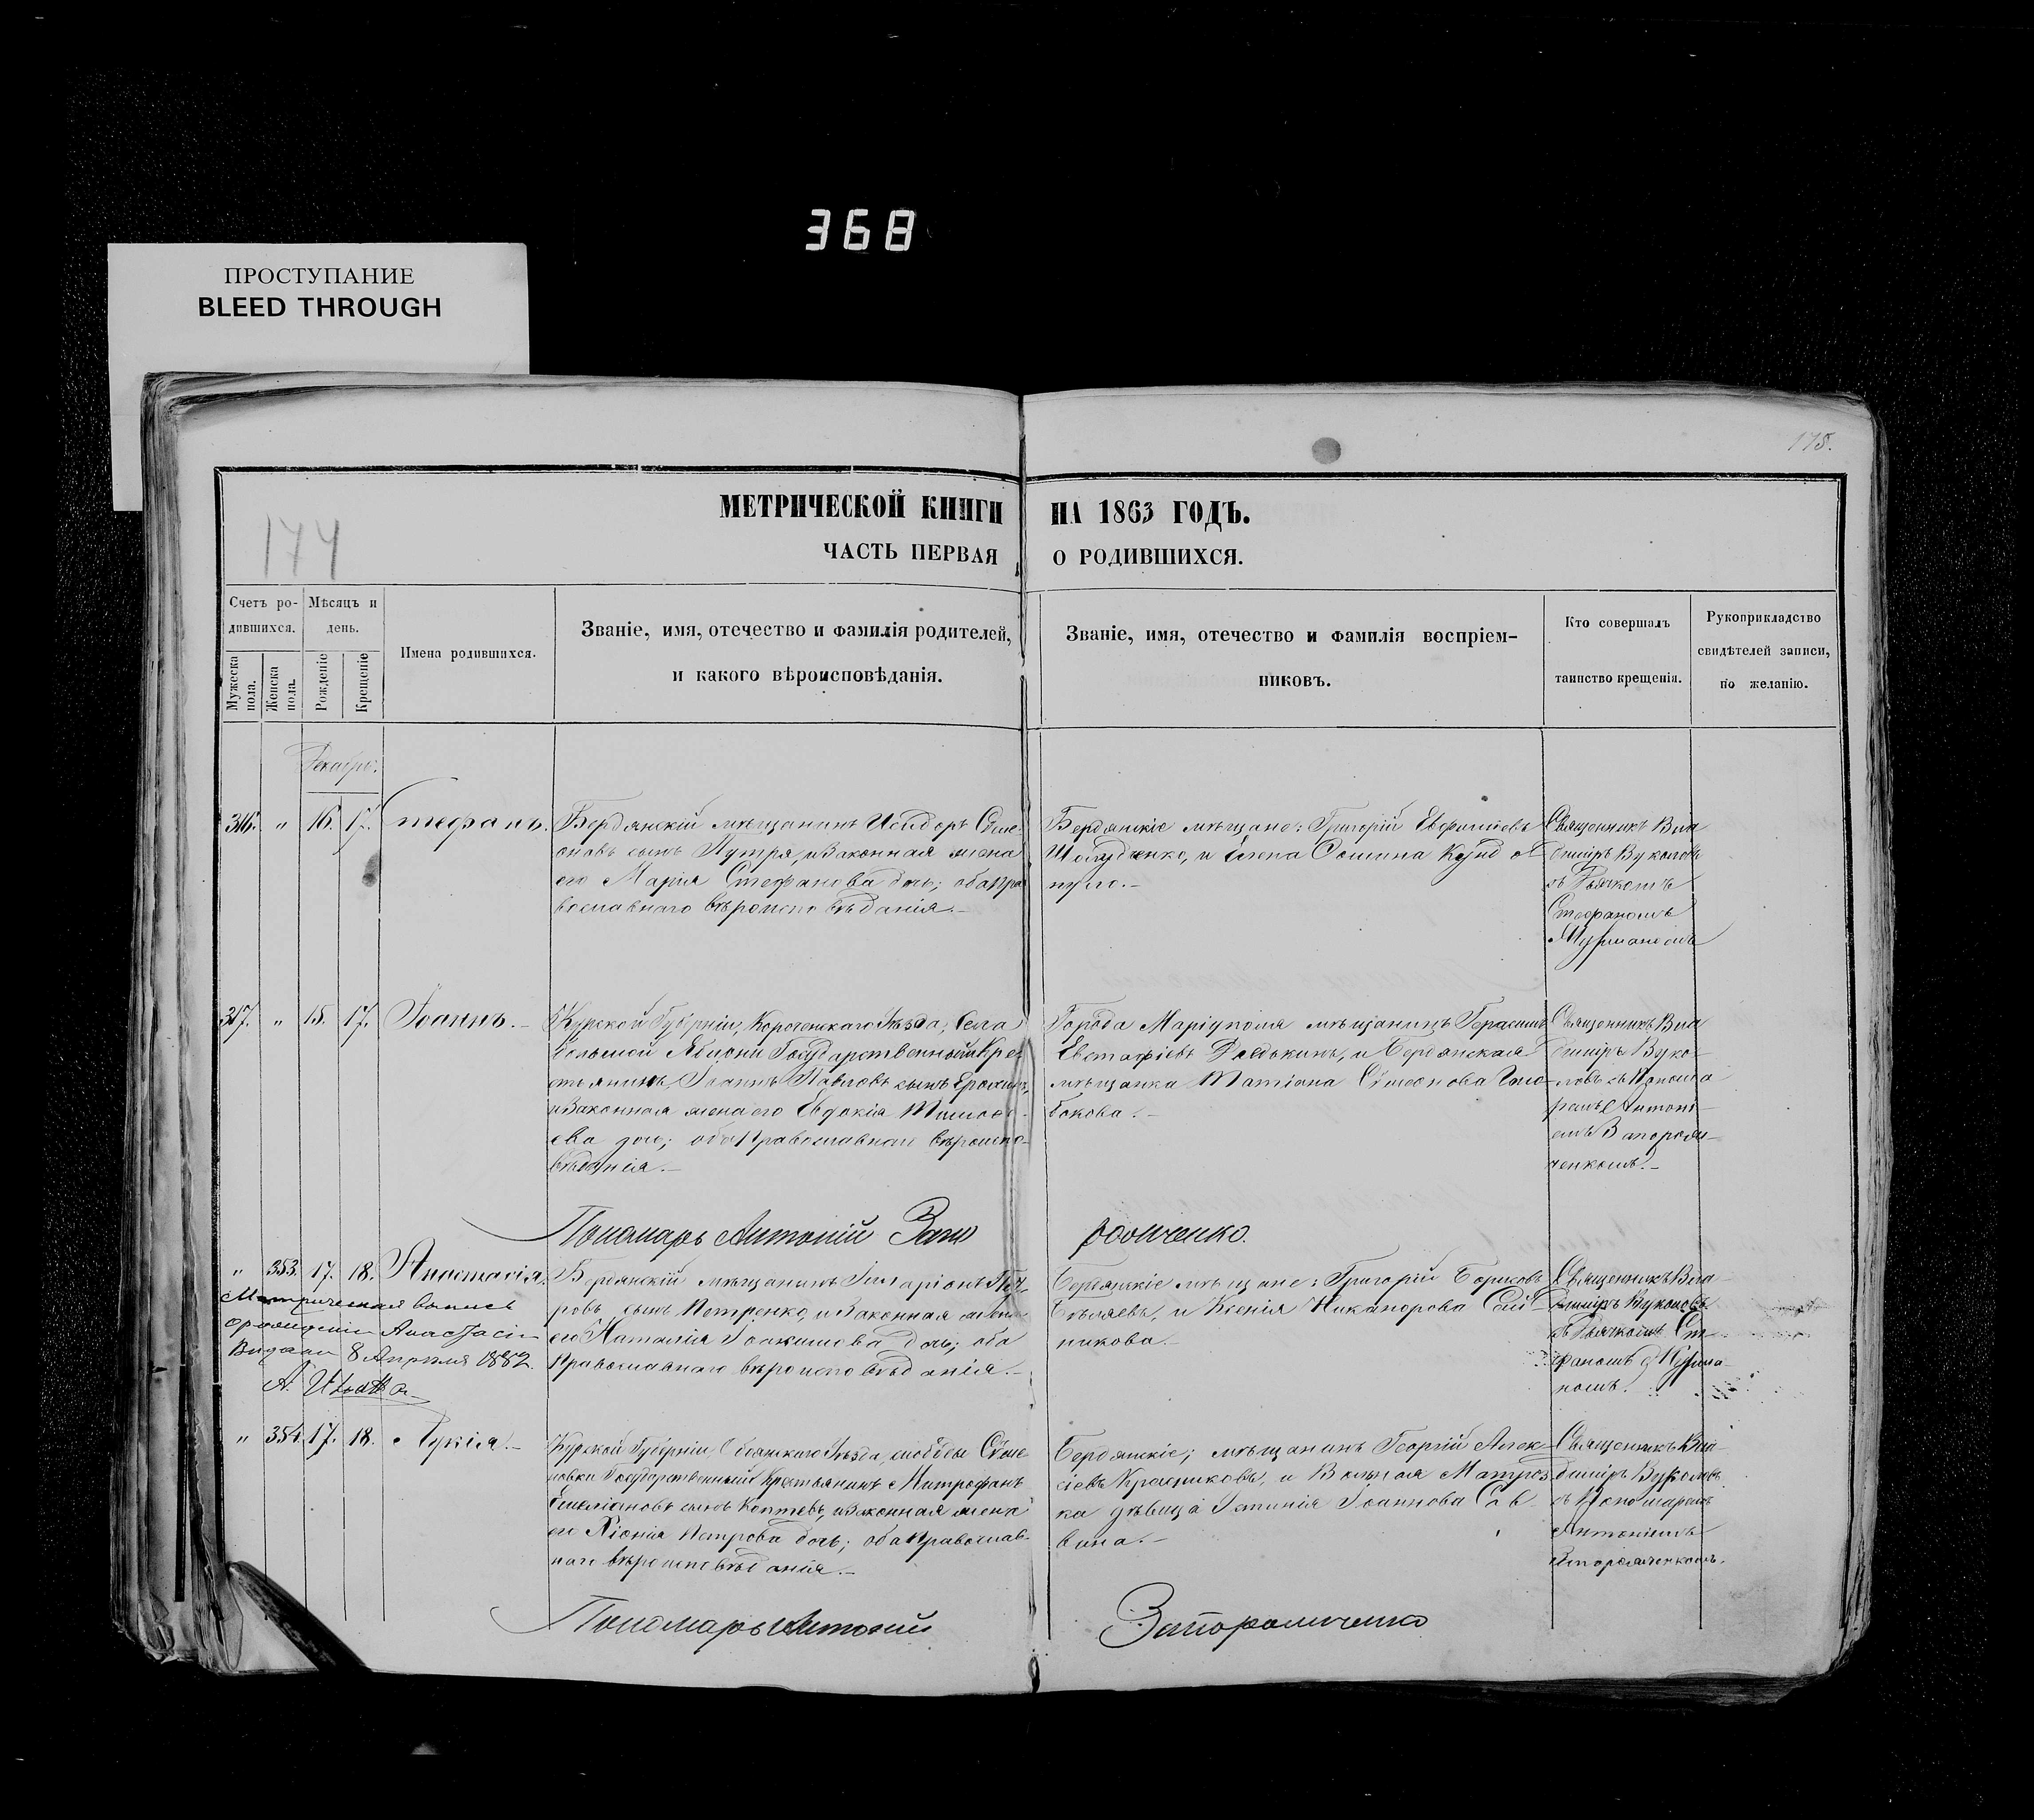 368
ПРОСТУПАНИЕ
BLEED THROUGH
175.
174
МЕТРИЧЕСКОЙ КНИГИ НА 1863 ГОДЪ.
ЧАСТЬ ПЕРВАЯ О РОДИВШИХСЯ.
Счетъ родившихся.
Мужеска пола.
Женска пола.
Мѣсяцъ и день.
Рожденіе
Крещеніе
Имена родившихся.
Званіе, имя, отечество и фамилія родителей,
и какого вѣроисповѣданія.
Званіе, имя, отечество и фамилія воспріем-
никовъ.
Кто совершалъ
таинство крещенія.
Рукоприкладство
свидѣтелей записи,
по желанію.
Декабрь.
316. " 16. 17. Стефанъ.
Бердянскій мѣщанинъ Исидоръ Симе-
оновъ сынъ Путря, и законная жена
его Марія Стефанова дочь; оба пра
вославнаго вѣроисповѣданія.-
Бердянскіе мѣщане: Григорій Евфиміевъ
и Елена Фомина
Священникъ Вла
диміръ Вуколовъ
съ Дьячкомъ
Стефаномъ
317. " 15. 17. Іоаннъ.-
Курской Губерніи, Короченскаго Уѣзда, Села
Большой Яблони Государственный Кре-
стьянинъ, Іоаннъ Павловъ сынъ Ерохинъ,
и законная жена его Евдокія Тимофе-
ева дочь; оба Православнаго вѣроиспо-
вѣданія.-
Города Маріуполя мѣщанинъ Герасимъ
Евстафіевъ Редькинъ, и Бердянская
мѣщанка Татіана Симеонова
бокова.-
Священникъ Вла
диміръ Вуко-
ловъ съ Понома
ремъ Антоні-
емъ Запорож-
ченкомъ.-
Пономарь Антоній Запорожченко.
" 353. 17. 18. Анастасія.
Бердянскій мѣщанинъ Иларіонъ Пет-
ровъ сынъ Петренко, и законная жена
его Наталія Іоакимова дочь; оба
Православнаго вѣроисповѣданія.-
Бердянскіе мѣщане: Григорій Борисовъ
Бѣляевъ, и Ксенія Никанорова
никова.-
Священникъ Вла-
диміръ Вуколовъ
съ Дьячкомъ Сте
фаномъ
Метрическая выпись
о рожденіи Анастасіи
Выдана 8 Апрѣля 1882.
" 354. 17. 18. Лукія.-
Курской Губерніи Обоянскаго Уѣзда, слободы Симе-
новки Государственный Крестьянинъ Митрофанъ
Емеліановъ сынъ Коптевъ, и законная жена
его Хіонія Петрова дочь; оба Православ-
наго вѣроисповѣданія.-
Бердянскіе; мѣщанинъ Георгій Алек-
сіевъ Красниковъ, и Вольная Матроз
ка дѣвица Устинія Іоаннова Сав
вина.-
Священникъ Вла-
диміръ Вуколовъ
съ Пономаремъ
Антоніемъ
Запорожченкомъ.
Пономарь Антоній Запорожченко